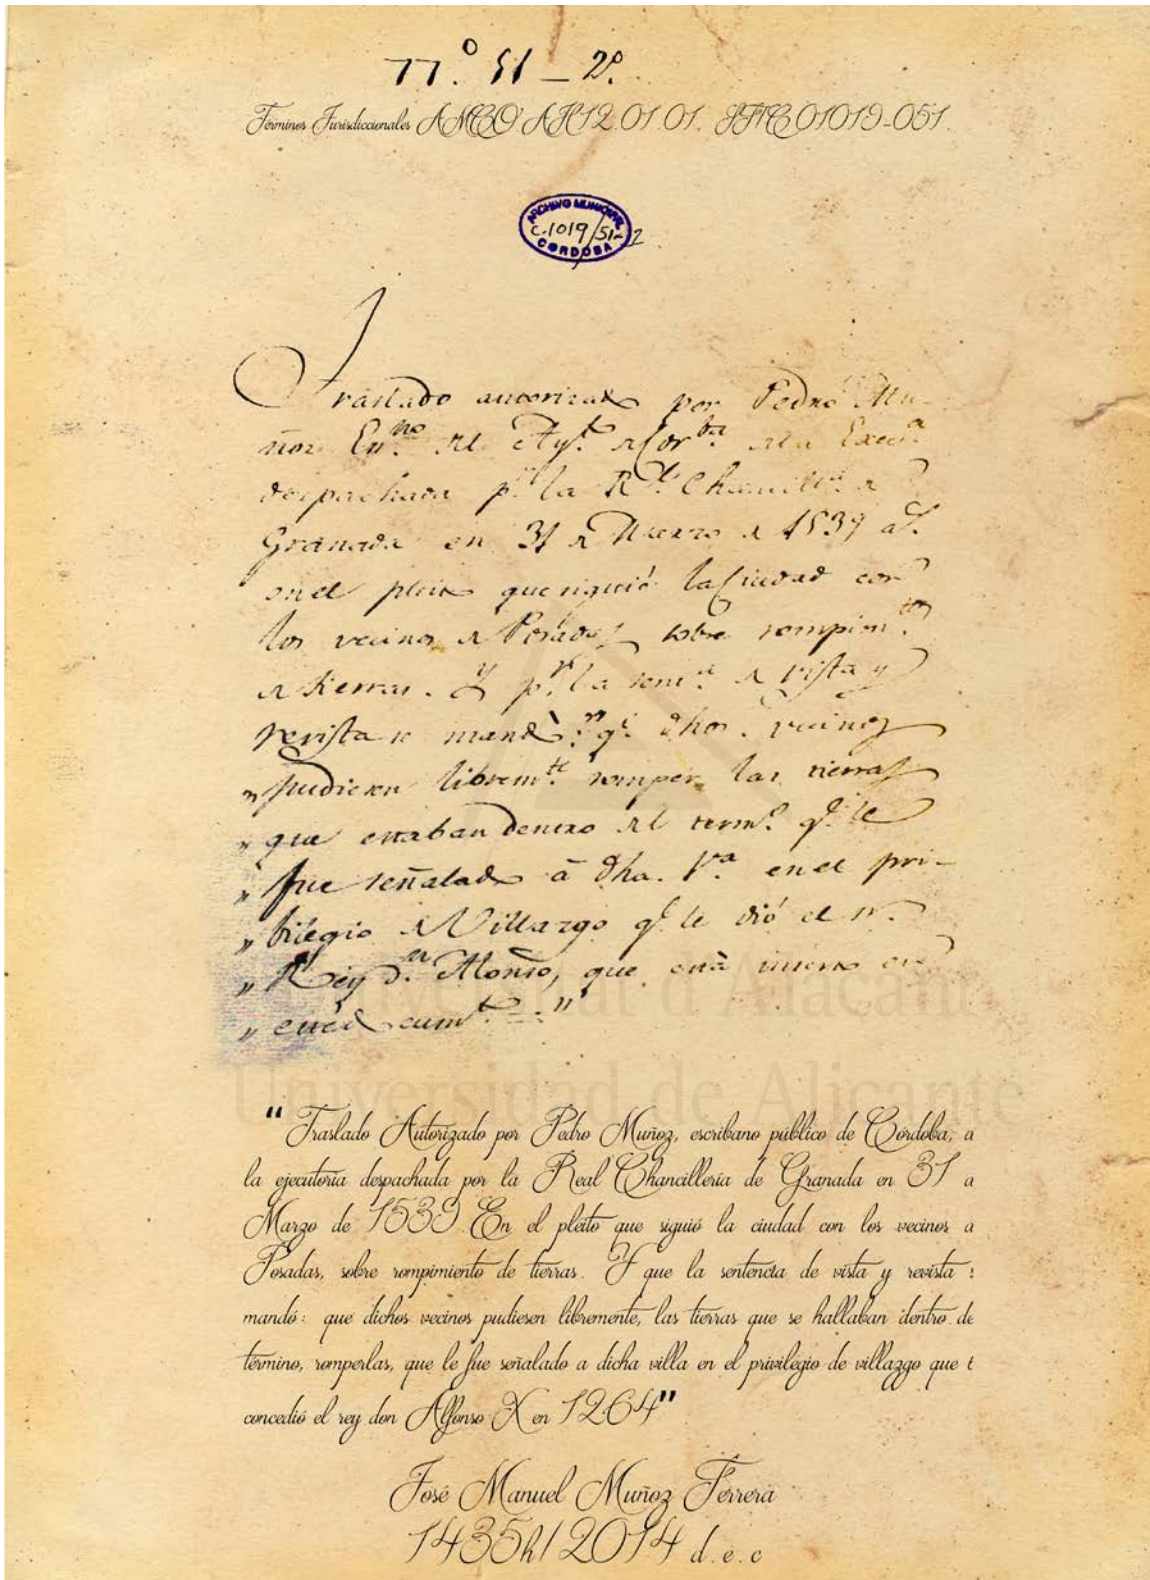 n.º 51 - 2º.
Términos Jurisdiccionales AMCO AH12.01.01. SF/C 01019-051.
ARCHIVO MUNICIPAL
C.1019/51-2
CORDOBA
Traslado autorizado por Pedro Mu-
ñoz Esn.no del Ay.to de Cor.ba de la Exec.a
despachada p.r la R.l Chancill.a de
Granada en 31 de Marzo de 1539 a.s
en el pleito que siguió la Ciudad con
los vecinos de Posadas sobre rompim.tos
de tierras. Y p.r la sent.a de vista y
revista se mandó: "q.e dhos. vecinos
"pudiesen librem.te romper las tierras
"que estaban dentro del term.o q.e le
"fue señalado à dha. V.a en el pri-
"bilegio de Villazgo q.e le dió el s.r
"Rey d.n Alonso, que està inserto en
Universitat d'Alacant
Universidad de Alicante
"Traslado Autorizado por Pedro Muñoz, escribano público de Córdoba, a
la ejecutoria despachada por la Real Chancillería de Granada en 31 a
Marzo de 1539. En el pleito que siguió la ciudad con los vecinos a
Posadas, sobre rompimiento de tierras. Y que la sentencia de vista y revista :
mandó: que dichos vecinos pudiesen libremente, las tierras que se hallaban dentro de
término, romperlas, que le fue señalado a dicha villa en el privilegio de villazgo que t
concedió el rey don Alfonso X en 1264"
José Manuel Muñoz Ferrera
1435h/2014 d.e.c